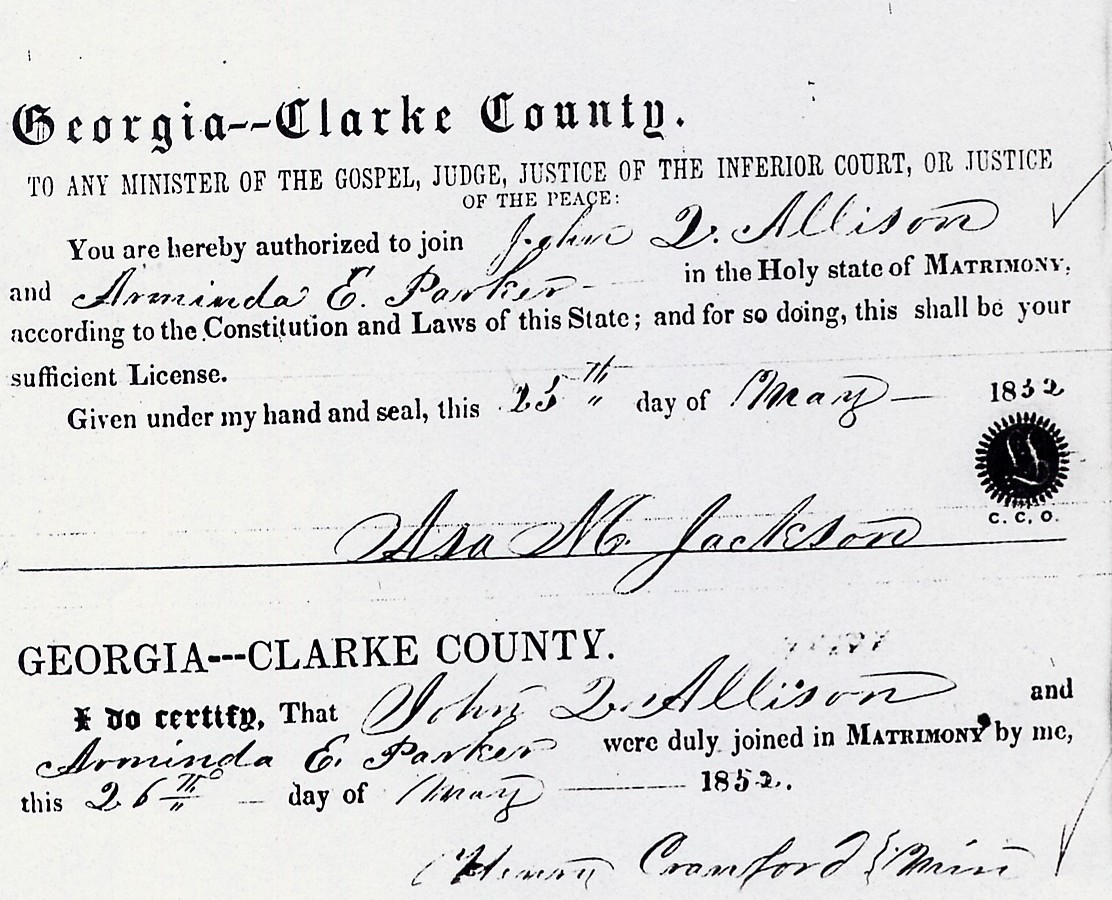 Georgia--Clarke County.
TO ANY MINISTER OF THE GOSPEL, JUDGE, JUSTICE OF THE INFERIOR COURT, OR JUSTICE
OF THE PEACE:
You are hereby authorized to join John Q. Allison
and Arminda E. Parker in the Holy state of MATRIMONY,
according to the Constitution and Laws of this State; and for so doing, this shall be your
sufficient License.
Given under my hand and seal, this 25th day of May 1852
C. C. O.
Asa M. Jackson
GEORGIA---CLARKE COUNTY.
I do certify, That John Q. Allison and
Arminda E. Parker were duly joined in MATRIMONY by me,
this 26th day of May 1852.
Henry Crawford Min